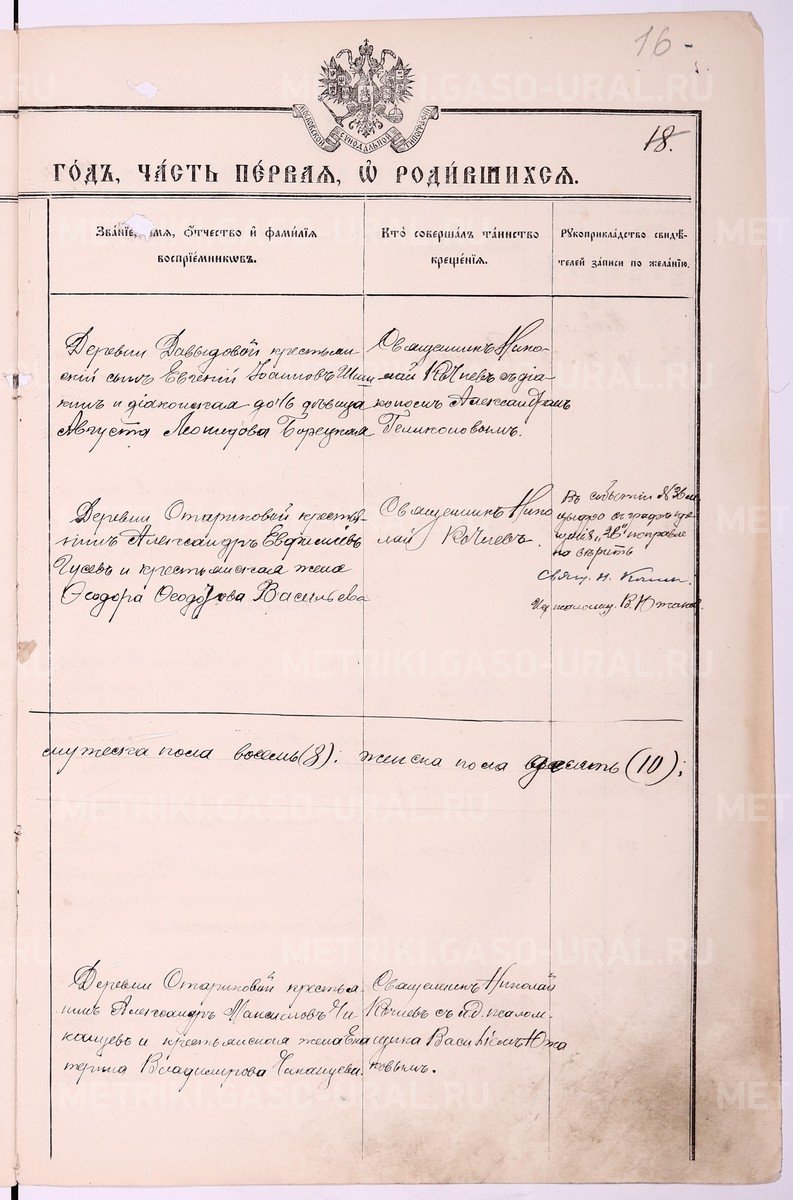 16-
18.
МОСКОВСКОЙ СѴНОДАЛЬНОЙ ТИПОГРАФІИ
ГО́ДЪ, ЧА́СТЬ ПЕ́РВАЯ, Ѽ РОДИ́ВШИХСЯ.
Зва́нїе, имя, Ѻтчество и҆ фами́лїя
воспрїе́мниковъ.
Кто̀ соверша́лъ та́инство
креще́нїя.
Рукоприкла́дство свидѣ́-
телей за́писи по жела́нїю.
Деревни Давыдовой крестьян-
скій сынъ Евгеній Іоанновъ Шиш
кинъ и діаконская дочь дѣвица
Августа Леонидова Борецкая
Священникъ Нико-
лай Кочневъ съ діа
кономъ Александромъ
Геликоновымъ.
Деревни Отариновой крестья-
нинъ Александръ Евфиміевъ
Гусевъ и крестьянская жена
Ѳеодора Ѳеодорова Васильева
Священникъ Нико
лай Кочневъ.
Въ событіи №36
цифра въ графѣ
"28" поправле
на вѣрить
Свящ. Н. Кочн.
И.д. псаломщ. В. Южаков.
мужеска пола восемь (8); женска пола десять (10);
Деревни Отариновой крестья-
нинъ Александръ Максимовъ Чи
канцевъ и крестьянская жена Ека
терина Владимірова Чиканцева.
Священникъ Николай
Кочневъ съ и.д. псалом-
щика Василіемъ Южа
ковымъ.
METRIKI.GASO-URAL.RU